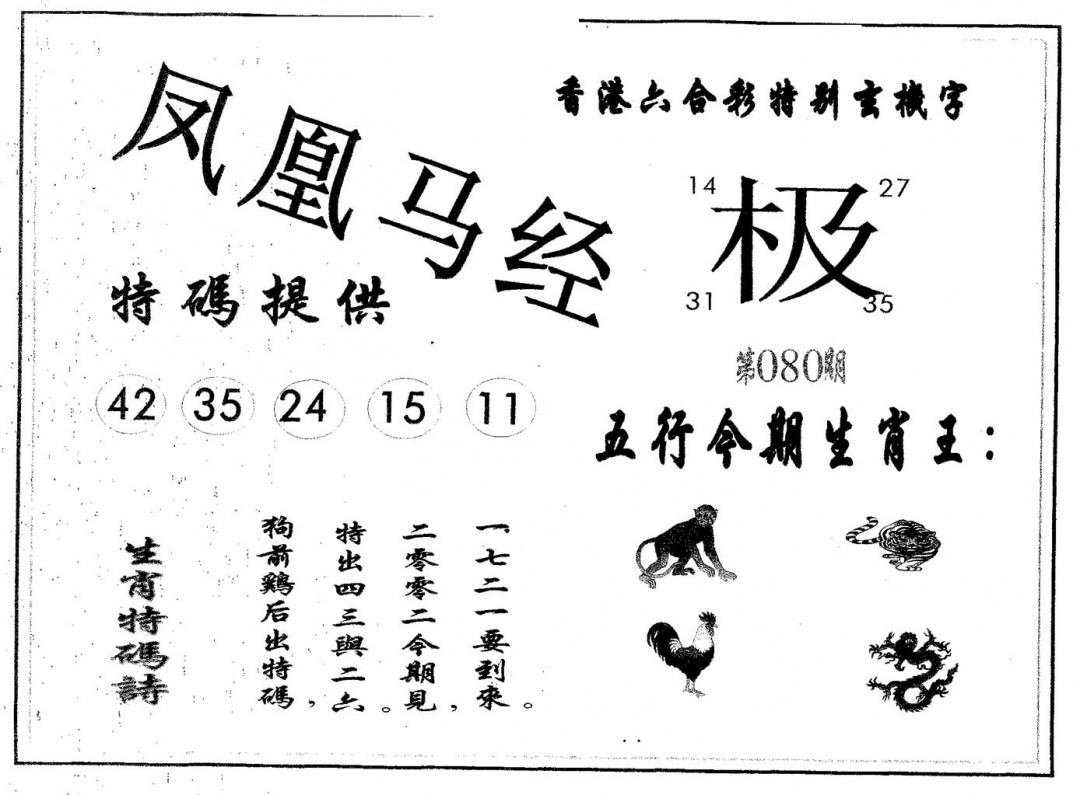 凤凰马经
特碼提供
42 35 24 15 11
生肖特碼詩
狗前鷄后出特碼，
特出四三與二六。
二零零二今期見，
一七二一要到來。
香港六合彩特别玄機字
14 27
极
31 35
第080期
五行今期生肖王：